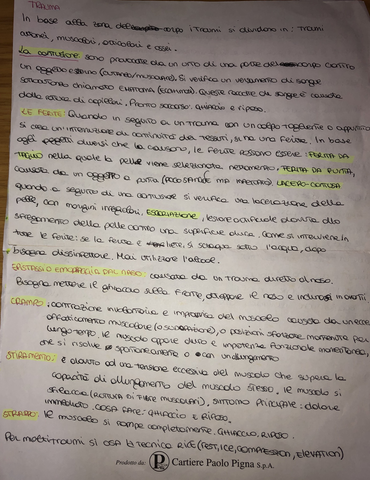 TRAUMA
In base alla zona del corpo i Traumi si dividono in: Traumi
cutanei, muscolari, articolari e ossei.
La contusione: sono provocate da un urto di una parte del corpo contro
un oggetto esterno (cutanea/muscolare). Si verifica un versamento di sangue
sottocutaneo chiamato EMATOMA (ECCHIMOSI). Questa raccolta di sangue è causata
dalla rottura di capillari. Pronto soccorso: Ghiaccio e riposo.
LE FERITE: Quando in seguito a un trauma con un corpo tagliente o appuntito
si crea un'interruzione di continuità dei tessuti, si ha una ferita. In base
agli oggetti diversi che la causano, le ferite possono essere: FERITA DA
TAGLIO nella quale la pelle viene selezionata nettamente, FERITA DA PUNTA,
causata da un oggetto a punta (POCO SPANDE MA PROFONDO) LACERO-CONTUSA
quando a seguito di una contusione si verifica una lacerazione della
pelle, con margini irregolari, ESCORIAZIONE, lesione superficiale dovuta allo
sfregamento della pelle contro una superficie dura. Come si interviene in
tutte le ferite: se la ferita è lieve, si sciacqua sotto l'acqua, dopo
bisogna disinfettare. Mai utilizzare l'alcool.
EPISTASSI O EMORRAGIA DAL NASO: causata da un trauma diretto al naso.
Bisogna mettere il ghiaccio sulla fronte, tamponare il naso e in avanti
CRAMPO: contrazione involontaria e improvvisa del muscolo causata da un eccessivo
affaticamento muscolare (o sudorazione), o posizioni sforzate mantenute per
lungo tempo. Il muscolo appare duro e impotenza funzionale momentanea,
che si risolve spontaneamente o con un allungamento
STIRAMENTO: è dovuto ad una tensione eccessiva del muscolo che supera la
capacità di allungamento del muscolo stesso. Il muscolo si
sfilaccia (ROTTURA DI FIBRE MUSCOLARI). SINTOMO PRINCIPALE: dolore
immediato. COSA FARE: GHIACCIO E RIPOSO.
STRAPPO: Il muscolo si rompe completamente. GHIACCIO, RIPOSO.
Per molti traumi si usa la tecnica RICE (REST, ICE, COMPRESSION, ELEVATION)
Prodotto da: P Cartiere Paolo Pigna S.p.A.